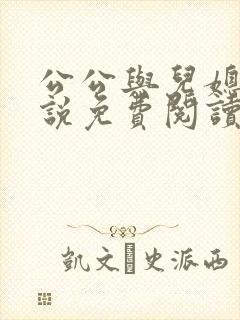 公公與兒媳
說免費閱讀
凱文·史派西